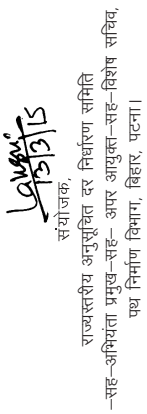 13/3/15
संयोजक,
राज्यस्तरीय अनुसूचित दर निर्धारण समिति
–सह–अभियंता प्रमुख–सह– अपर आयुक्त–सह–विशेष सचिव,
पथ निर्माण विभाग, बिहार, पटना।